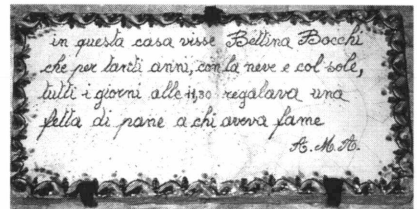 in questa casa visse Bettina Bocchi
che per tanti anni, con la neve e col sole,
tutti i giorni alle 11,30 regalava una
fetta di pane a chi aveva fame
A. M. A.